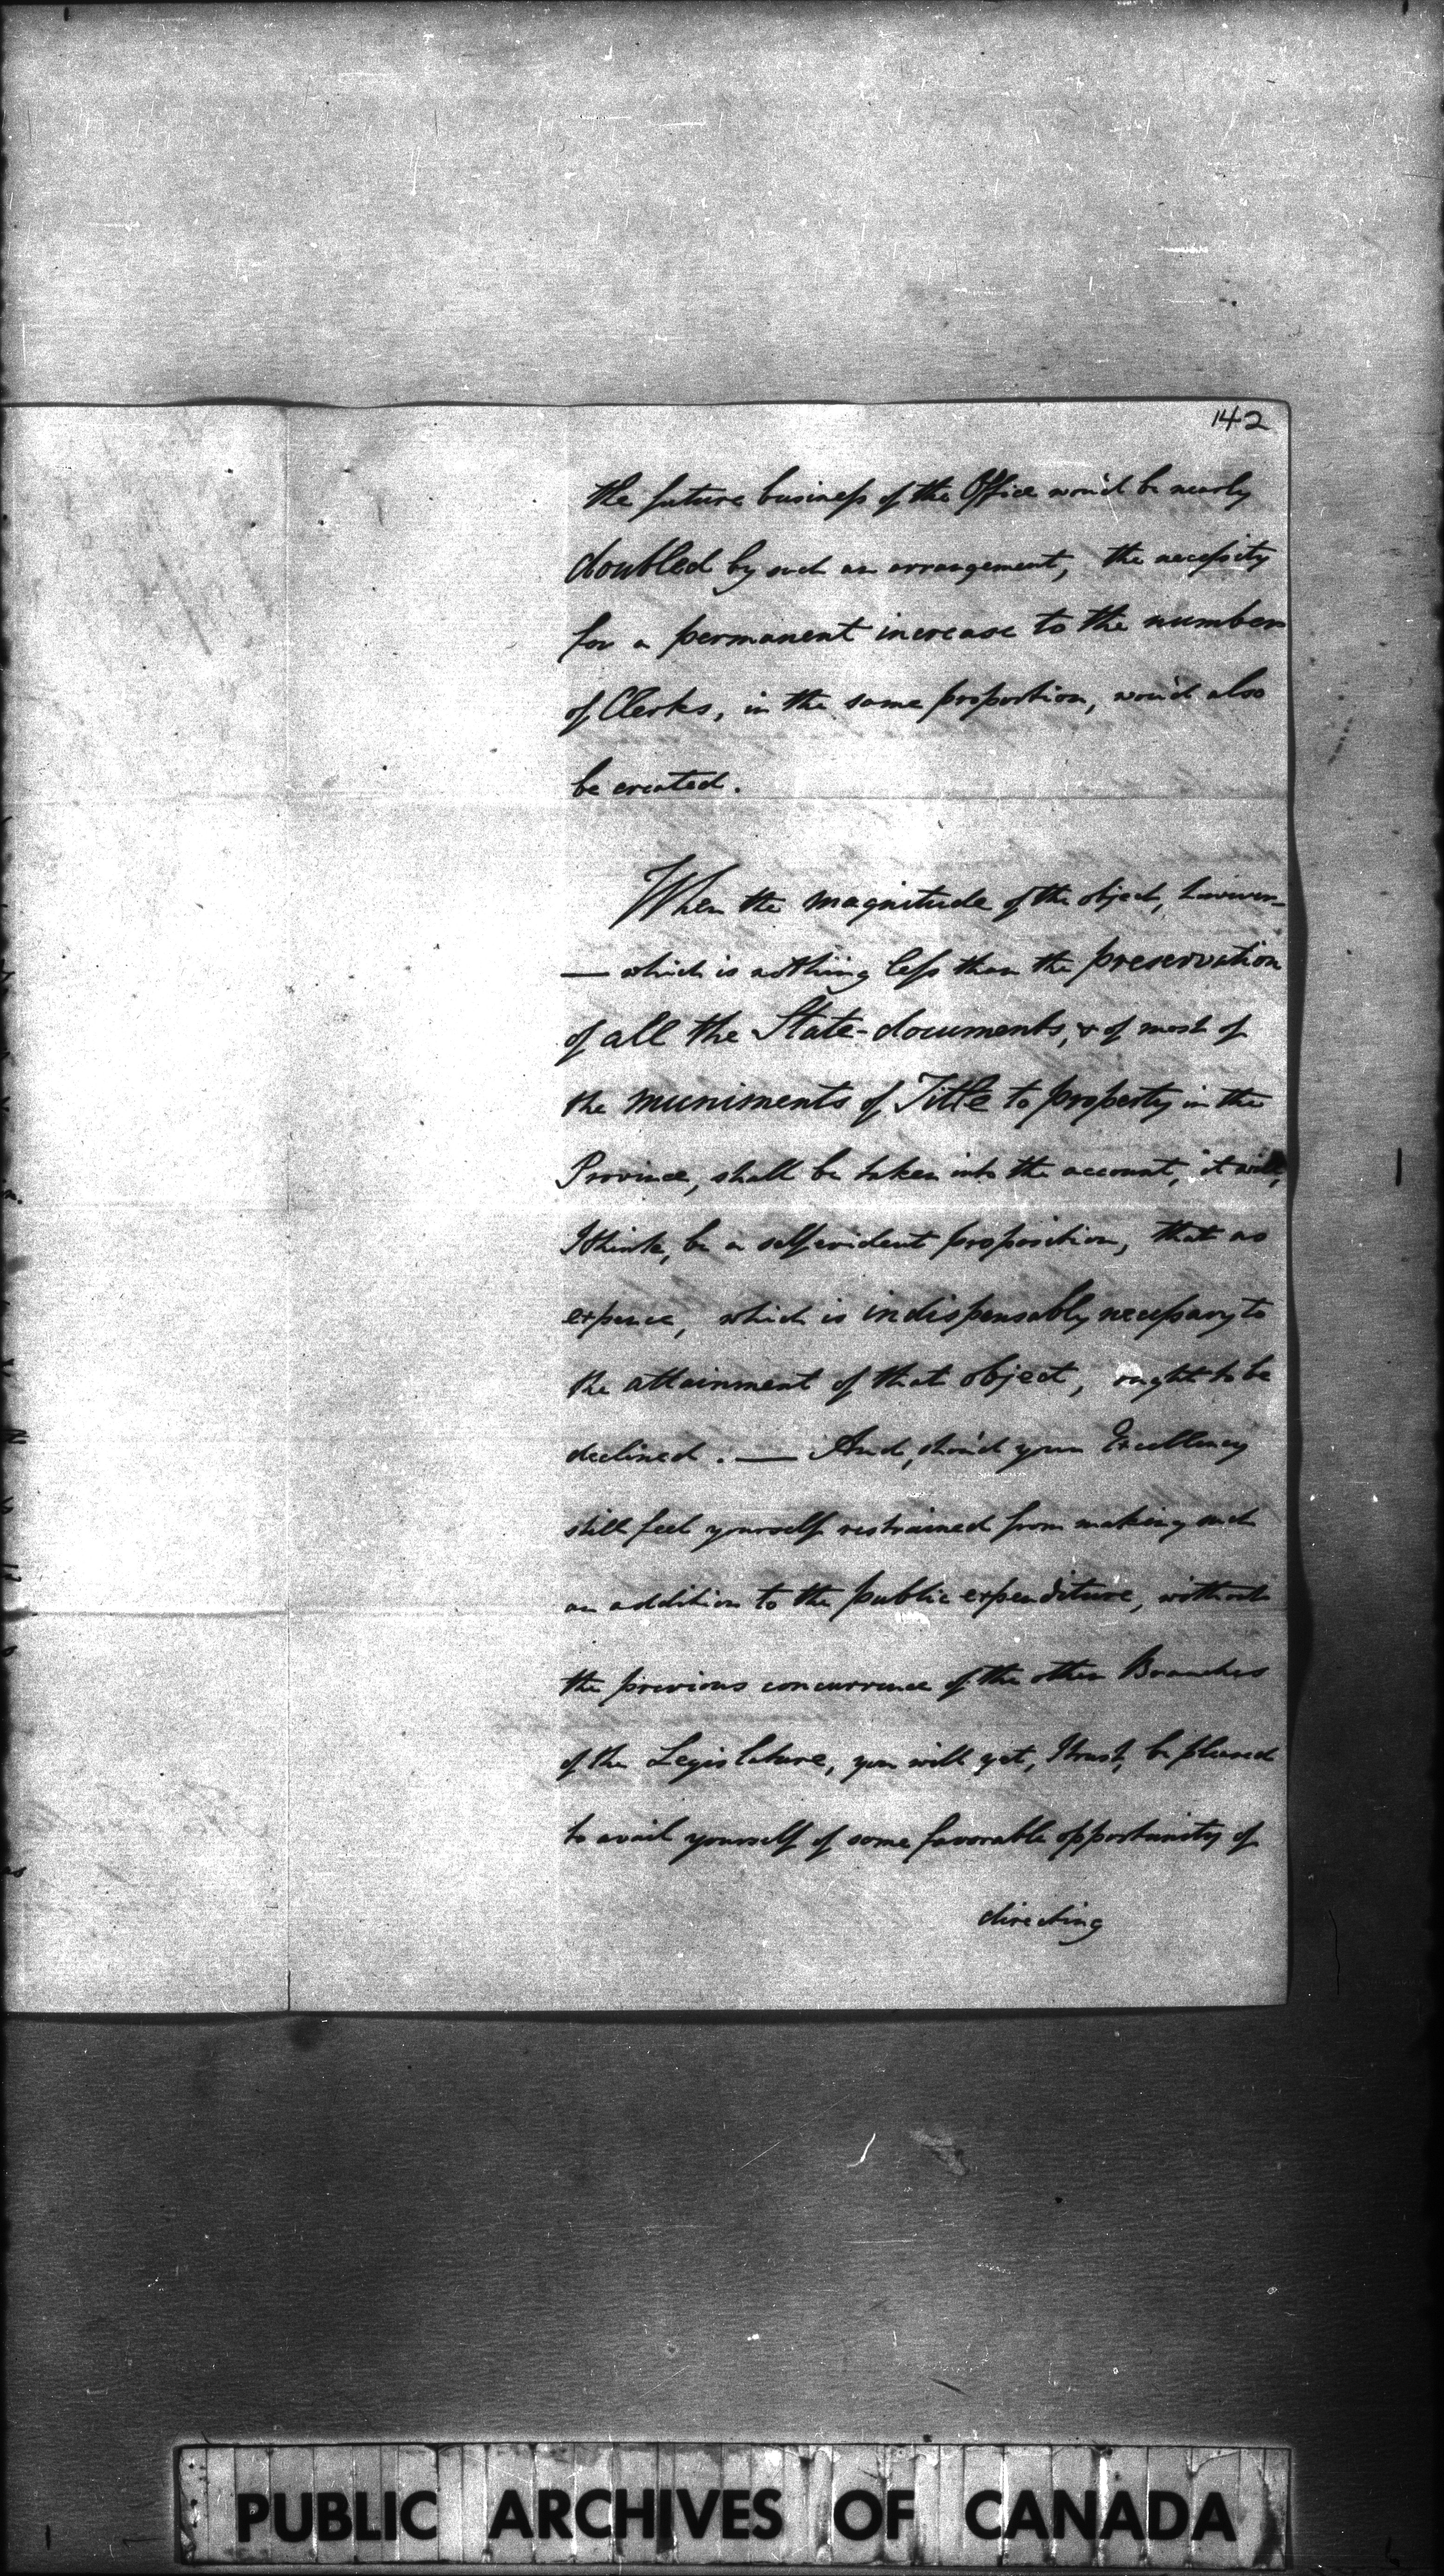 142
the future business of the Office wou'd be nearly
doubled by such an arrangement, the necessity
for a permanent increase to the number
of Clerks, in the same proportion, wou'd also
be created.
When the magnitude of the object, however
— which is nothing less than the preservation
of all the State-documents, & of most of
the muniments of Title to property in the
Province, shall be taken into the account, it will,
I think, be a self evident proposition, that no
expence, which is indispensably necessary to
the attainment of that object, ought to be
declined. — And, shou'd your Excellency
still feel yourself restrained from making such
an addition to the public expenditure, without
the previous concurrence of the other Branches
of the Legislature, you will yet, I trust, be pleased
to avail yourself of some favorable opportunity of
directing
PUBLIC ARCHIVES OF CANADA